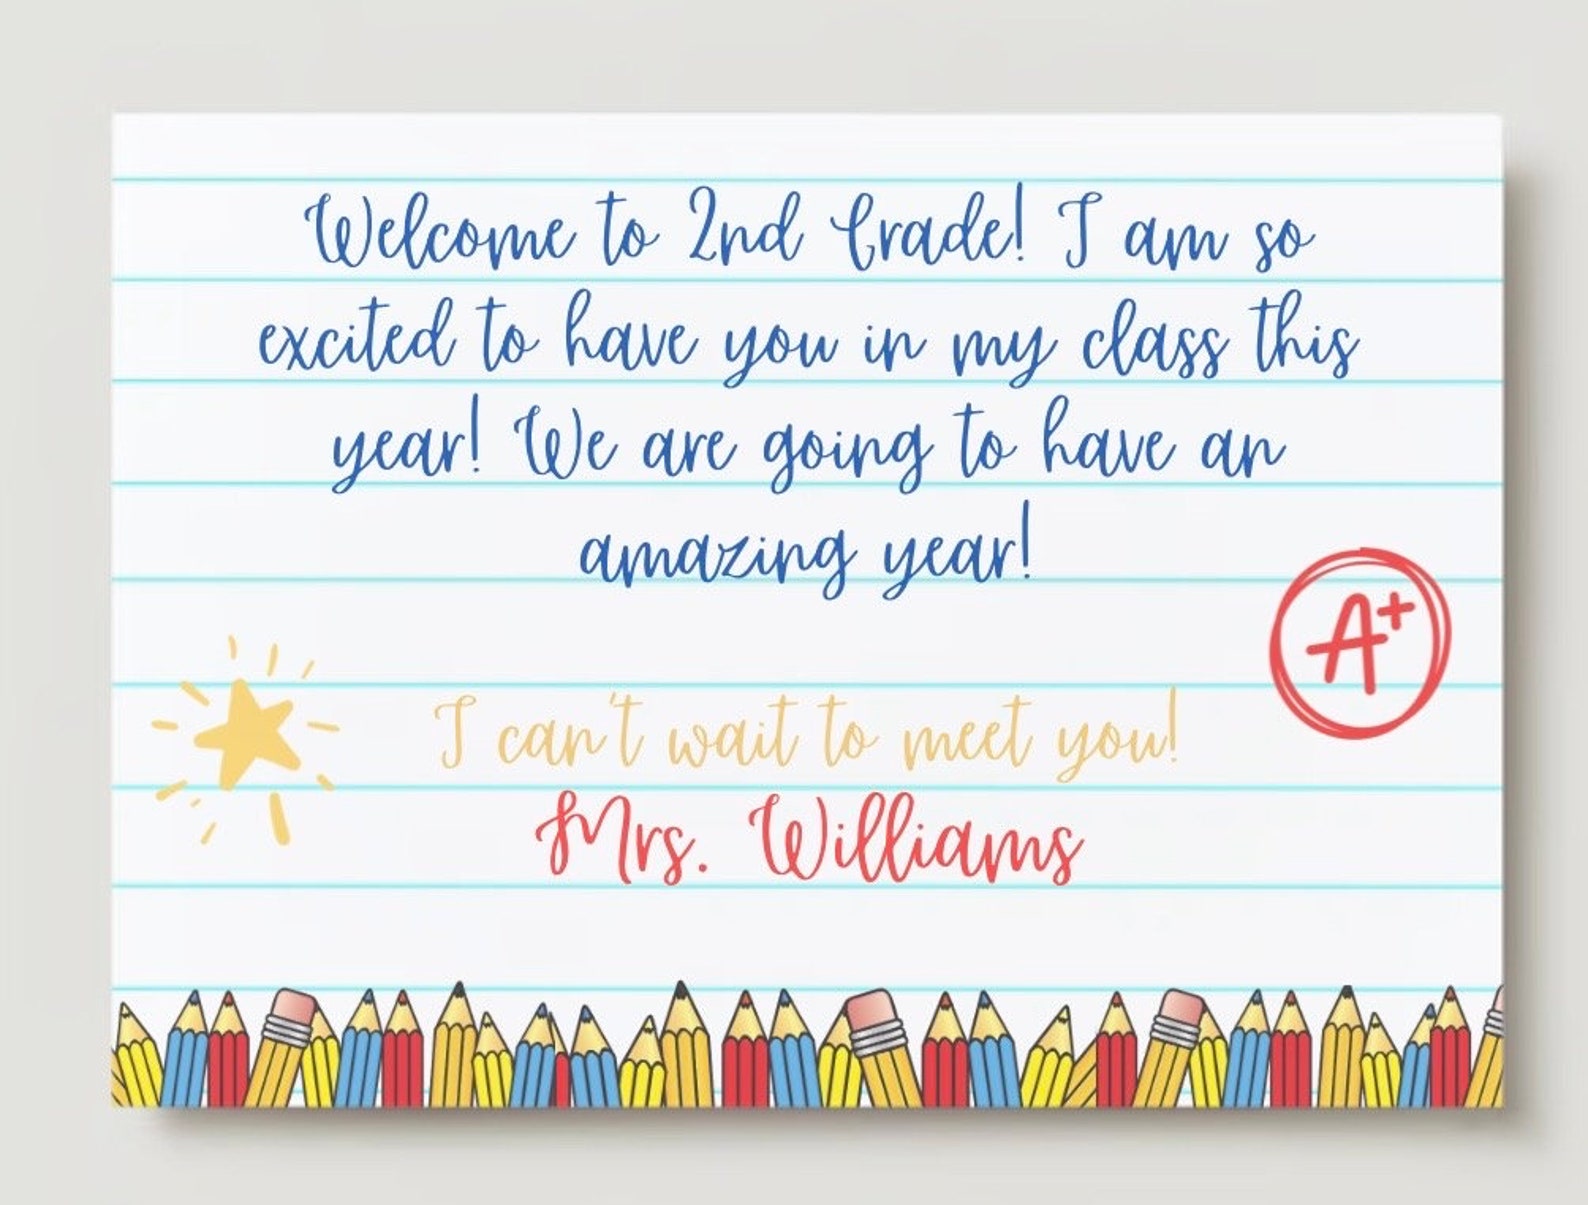 Welcome to 2nd Grade! I am so
excited to have you in my class this
year! We are going to have an
amazing year!
A+
I can't wait to meet you!
Mrs. Williams